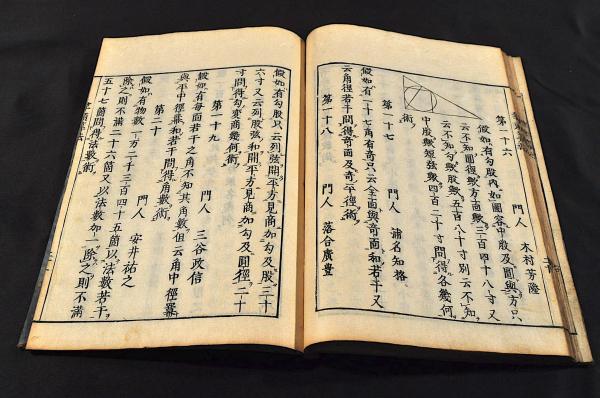 第一十六
門人 木村芳隆
假如有勾股内如圖容中股及圓與方只
云不知圓徑歟方面歟三百四十八寸又
云不知勾歟股歟五百八十寸別云不知
中股歟短弦歟四百二十寸問得各幾何
術
第一十七
門人 浦名知格
假如有二十七角有奇只云全面與奇面和若干又
云角徑若干問得奇面及奇平徑術
第一十八
門人 落合廣豊
假如有勾股只云列弦開平方見商加勾及股二十
六寸又云列股弦和開平方見商加勾及圓徑二十
寸問得勾変商幾何術
第一十九
門人 三谷政信
設如有每面若干之角不知其角數但云角中徑冪
與平中徑冪和若干問得角數術
第二十
門人 安井祐之
假如有物數一万二千三百四十五箇以法數若干
除之則不滿二十六箇又以法數加一除之則不滿
五十七箇問得法數術